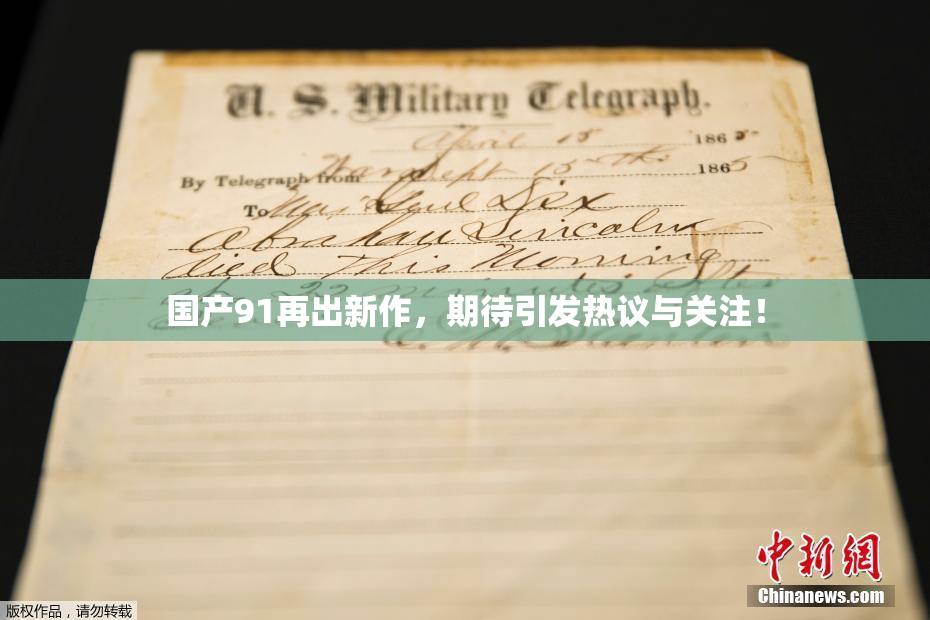 U. S. Military Telegraph.
April 15 1865
By Telegraph from War Dept 15th 1865
To Maj Genl Dix
Abraham Lincoln
died This Morning
at 22 minutes after
国产91再出新作，期待引发热议与关注！
E. M. Stanton
中新网
Chinanews.com
版权作品，请勿转载